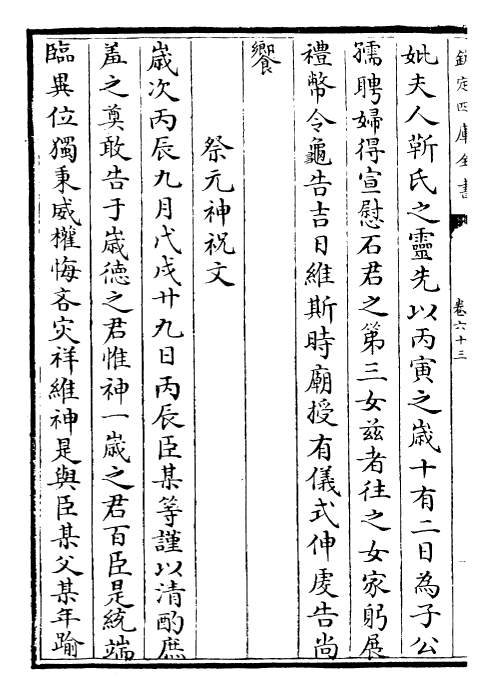 欽定四庫全書
卷六十三
妣夫人靳氏之靈先以丙寅之歲十有二日為子公
孺聘婦得宣慰石君之第三女兹者往之女家躬展
禮幣令龜告吉日維斯時廟授有儀式伸虔告尚
饗
祭元神祝文
歲次丙辰九月戊戌廿九日丙辰臣某等謹以清酌庶
羞之奠敢告于歲德之君惟神一歲之君百臣是統端
臨異位獨秉威權悔吝灾祥維神是與臣某父某年踰